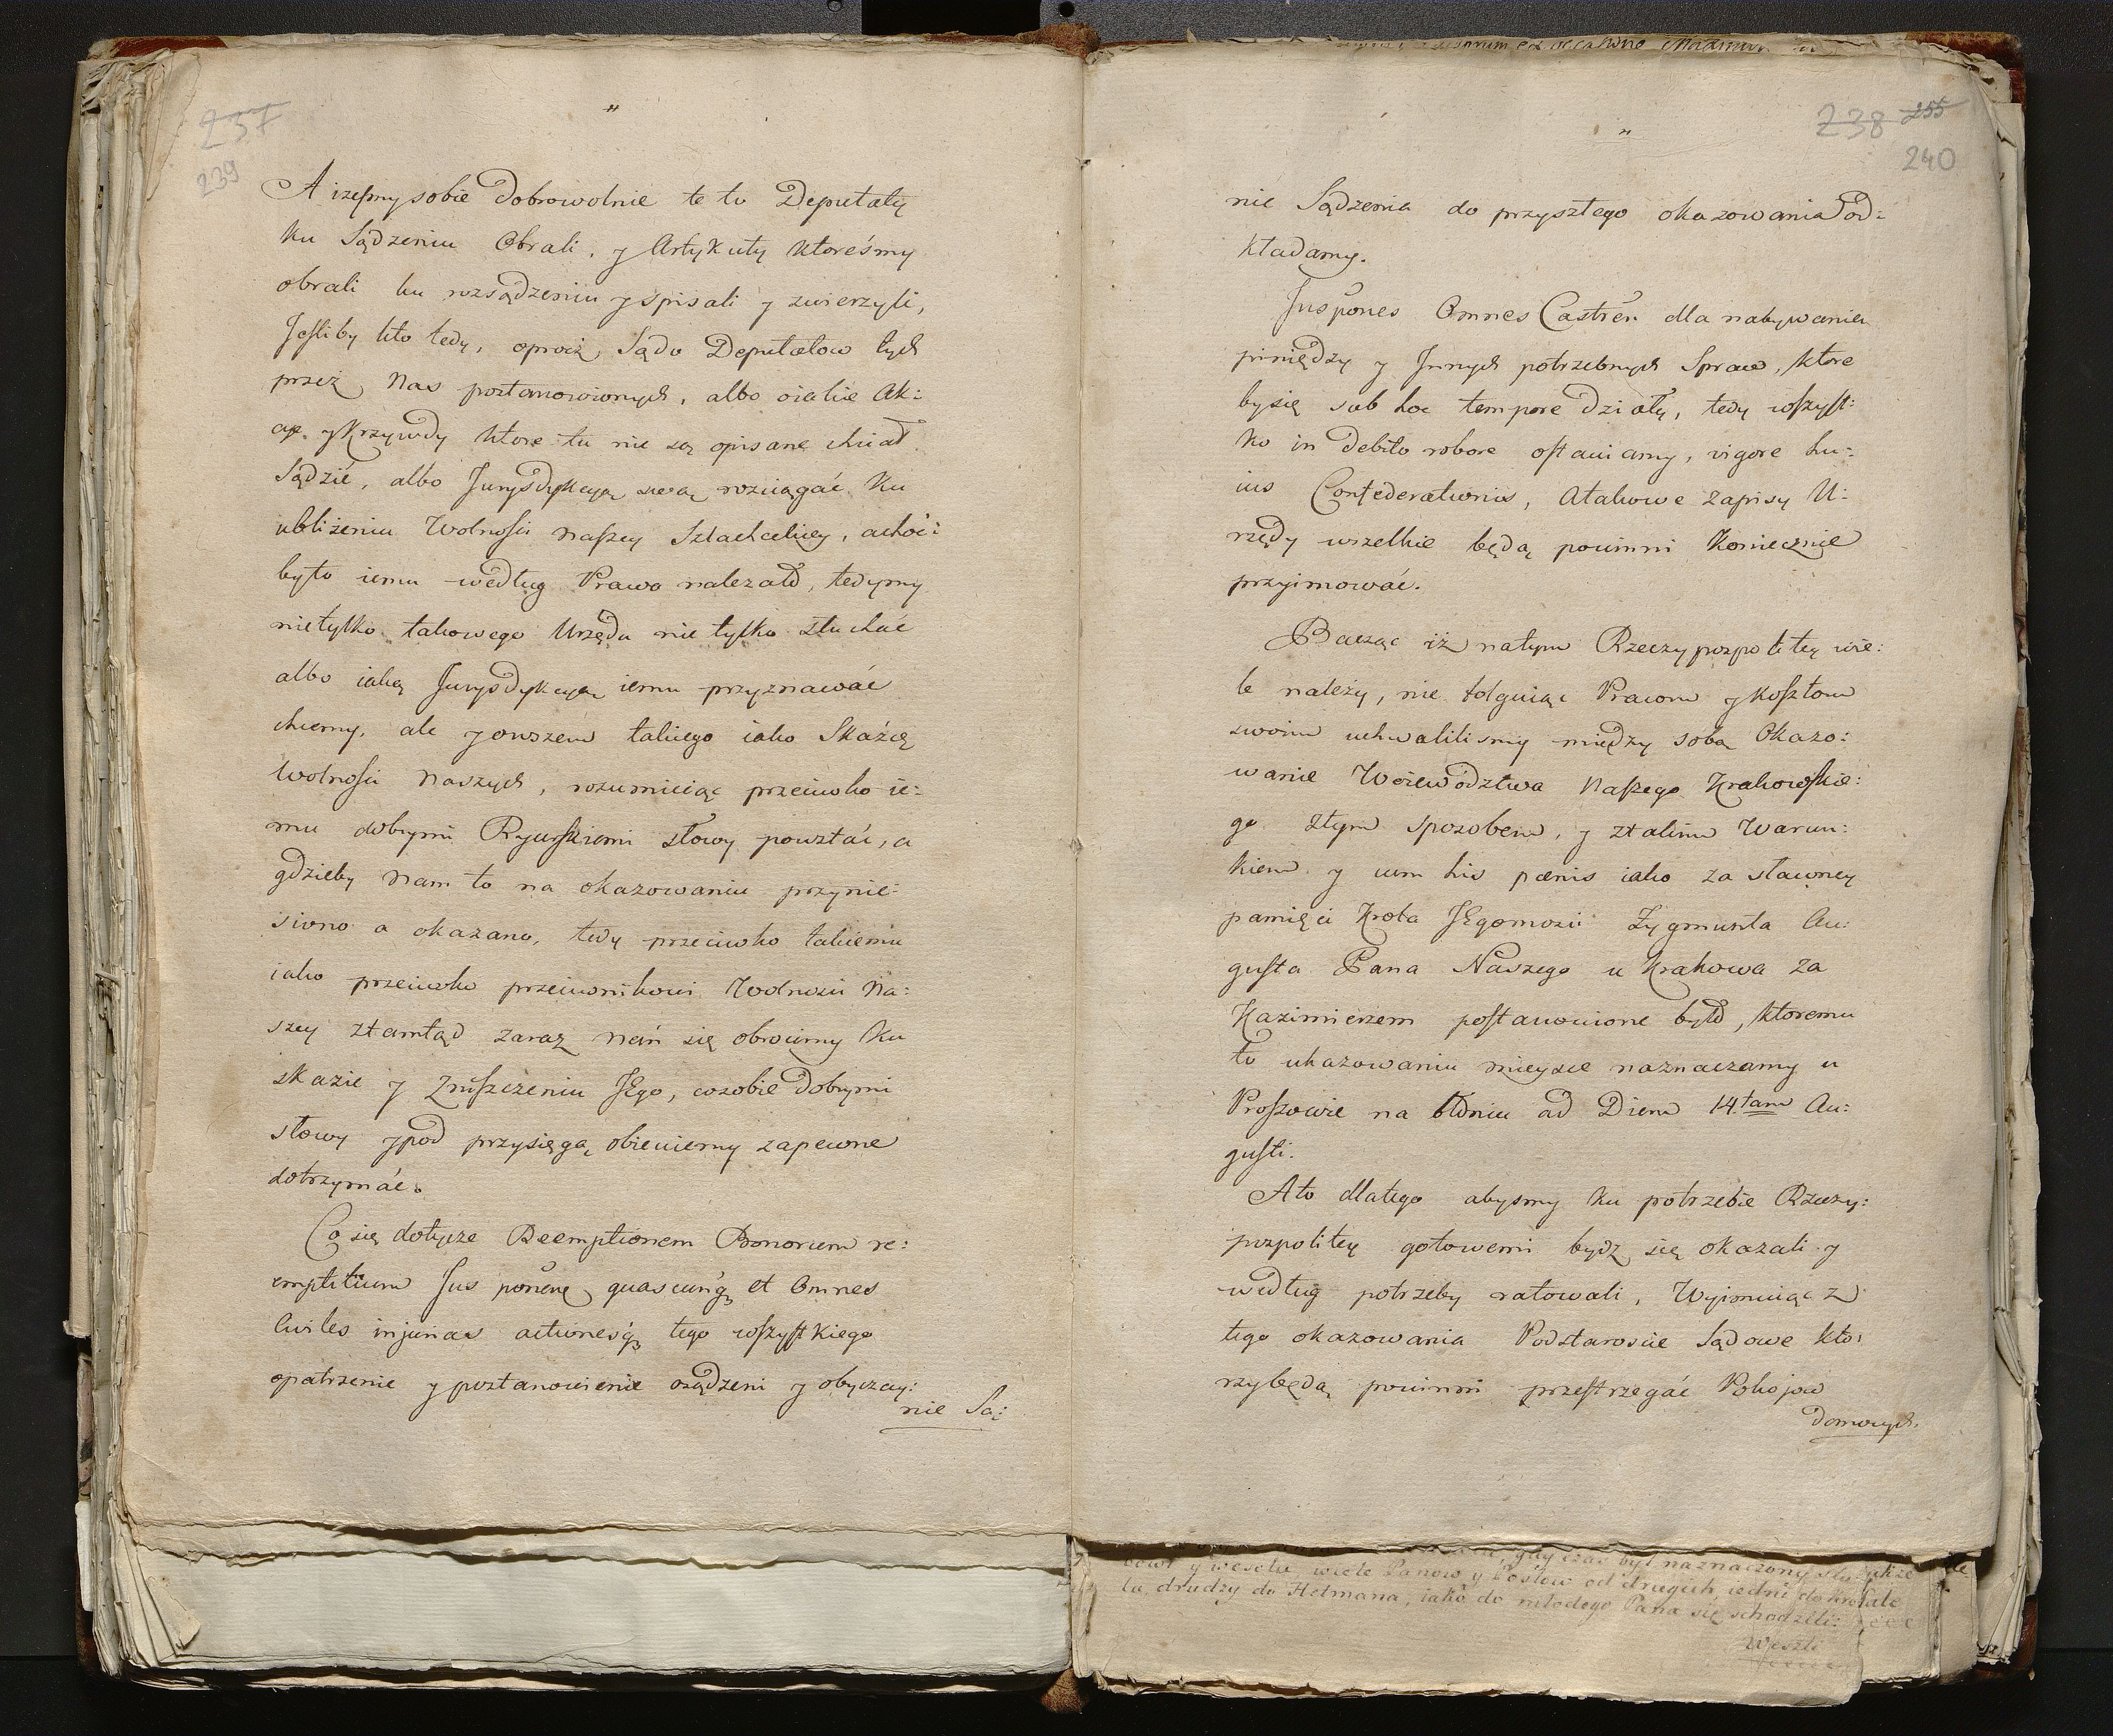 237
239
"
A iześmy sobie Dobrowolnie te tu Deputaty
ku Sądzeniu Obrali, y Artykuły któreśmy
obrali ku rozsądzeniu y spisali y zwierzyli,
Jeśliby kto tedy, oprocz Sądu Deputatow tych
przez Nas postanowionych, albo iakie Ak:
cye y Krzywdy ktore tu nie są opisane chciał
Sądzić, albo Jurysdykcyą swoią rozciągać ku
ubliżeniu Wolności naszey Szlacheckiey, achoć:
by to iemu według Prawa należało, tedy my
nie tylko takowego Urzędu nie tylko słuchać
albo iaką Jurysdykcyą iemu przyznawać
chcemy, ale y owszem takiego iako Skaźcę
Wolności Naszych, rozumieiąc przeciwko ie:
mu dobrymi Rycerskiemi słowy powstać, a
gdzieby Nam to na okazowaniu przynie:
siono a okazano, tedy przeciwko takiemu
iako przeciwko przeciwnikowi Wolności Na:
szey ztamtąd zaraz nań się obrocimy ku
skazie y Zniszczeniu JEgo, co sobie Dobrymi
słowy y pod przysięgą obiecuiemy zapewne
dotrzymać.
Co się dotycze Reemptionem Bonorum re:
emptitium Jus ponene quascunq; et Omnes
Civiles injurias actionesq; tego wszystkiego
opatrzenie y postanowienie osądzeni y obyczay:
nie Są:
238 255
240
"
nie Sądzenia do przyszłego okazowania od:
kładamy.
Jus pones Omnes Castren dla nabywania
pieniędzy y Innych potrzebnych Spraw, ktore
by się sub hoc tempore działy, tedy wszyst:
ko in debito robore ostawiamy, vigore hu:
ius Confederationis, A takowe Zapisy U:
rzędy wszelkie będą powinni Koniecznie
przyimować.
Bacząc iż na tym Rzeczypospolitey wie:
le należy, nie folguiąc Pracom y Kosztom
swoim uchwaliliśmy między sobą Okazo:
wanie Woiewództwa Naszego Krakowskie:
go z tym sposobem, y z takim Warun:
kiem y cum his pœnis iako za sławney
pamięci Krola JEgomości Zygmunta Au:
gusta Pana Naszego u Krakowa za
Kazimierzem postanowione było, ktoremu
to ukazowaniu mieysce naznaczamy u
Proszowic na błoniu ad Diem 14.tam Au:
gusti.
A to dlatego abysmy ku potrzebie Rzeczy:
pospolitey gotowemi bydz się okazali y
według potrzeby ratowali, Wyimuiąc z
tego okazowania Podstaroście Sądowe kto:
rzy będą powinni przestrzegać Pokojow
domowych.
gdy czas był naznaczony
y wesela, wiele Panow y Posłow od drugich iedni do
drudzy do Hetmana, iako do młodego Pana się schodzili:
Weszli